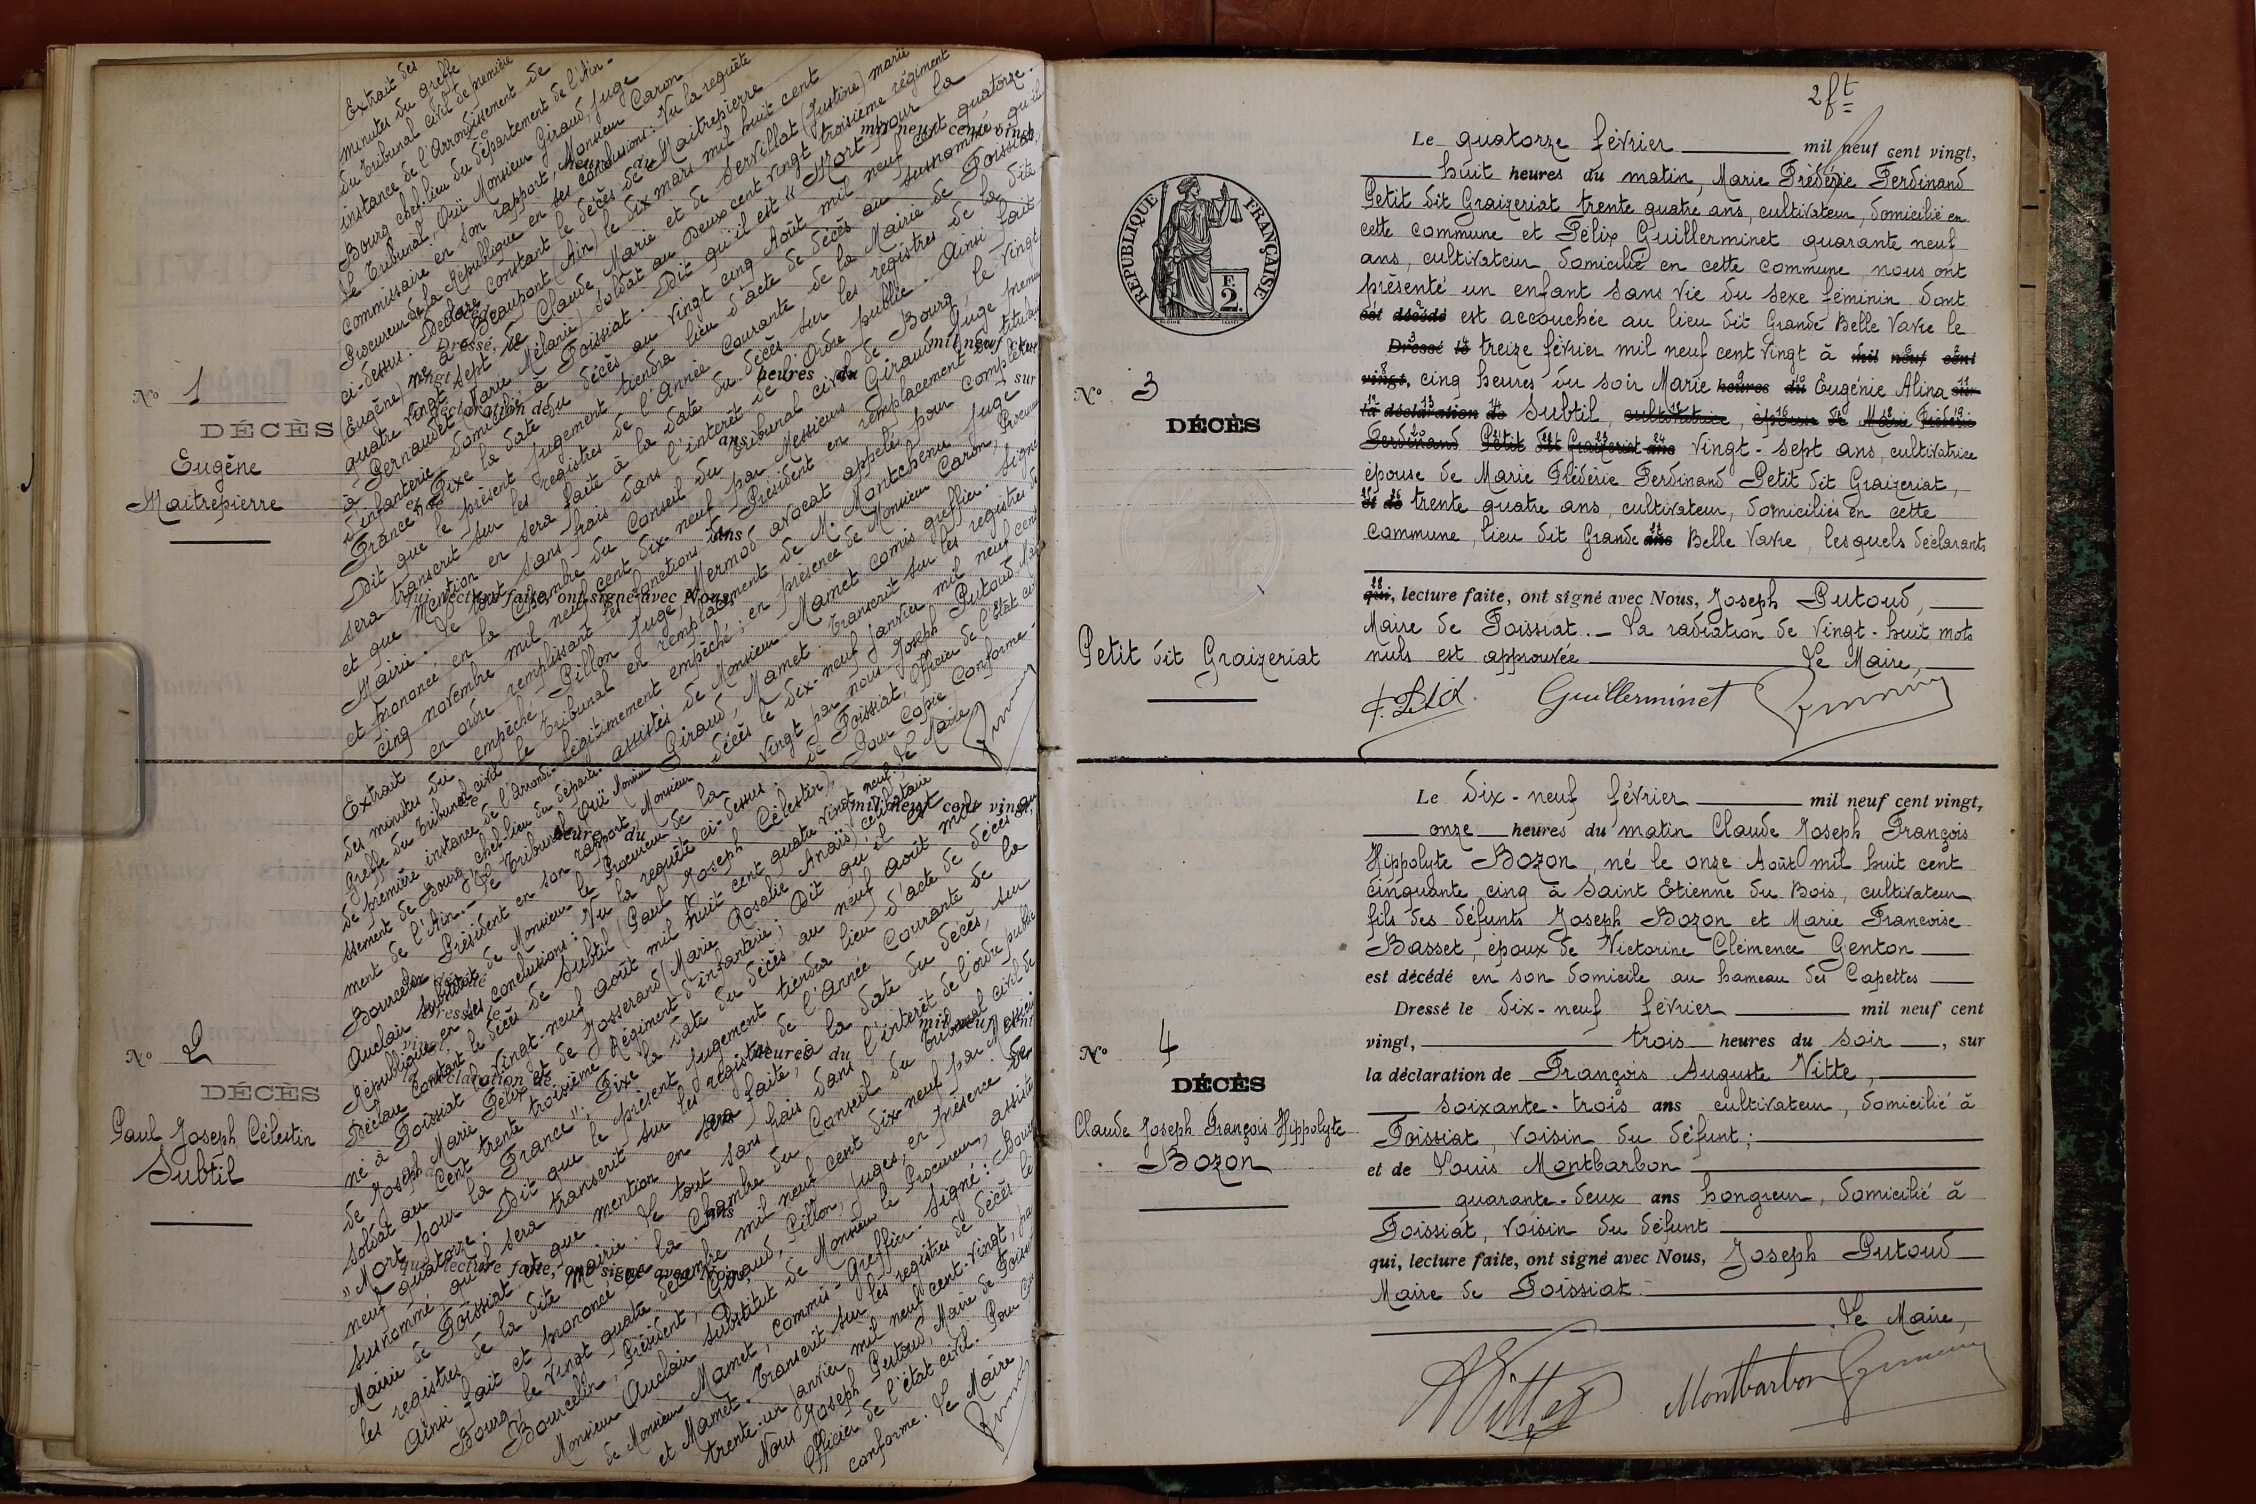 N° 1
DÉCÈS
Eugène
Maitrepierre
Extrait des
minutes du greffe
du tribunal civil de première
instance de l'Arrondissement de
Bourg chef-lieu du département de l'Ain.
Le Tribunal, Ouï Monsieur Giraud, Juge
commissaire en son rapport, Monsieur Caron
Procureur de la République en ses conclusions: Vu la requête
ci-dessus: Déclare constant le décès de Maitrepierre
Eugène) né à Beaupont (Ain) le dix mars mil huit cent
quatre vingt sept, de Claude Marie et de Servillat (Justine) marié
à Pernaudet (Marie Mélanie) soldat au Deux cent vingt troisième régiment
d'infanterie domicilié à Foissiat. Dit qu'il est "Mort pour la
France". Fixe la date du décès au vingt cinq Août mil neuf cent quatorze.
Dit que le présent jugement tiendra lieu d'acte de décès au susnommé qu'il
sera transcrit sur les registres de l'année courante de la Mairie de Foissiat,
et que mention en sera faite à la date du décès sur les registres de la dite
Mairie. Le tout sans frais dans l'intérêt de l'Ordre public. Ainsi fait
et prononcé en la Chambre du Conseil du Tribunal civil de Bourg, le vingt
cinq novembre mil neuf cent dix-neuf par Messieurs Giraud Juge premier
en ordre remplissant les fonctions de Président en remplacement du titulaire
empêché Pillon Juge, Mermod avocat appelé pour compléter
le tribunal en remplacement de M. Montchenu Juge
légitimement empêché; en présence de Monsieur Caron, Procureur
assistés de Monsieur Mamet comis greffier. Signé
Giraud, Mamet. Transcrit sur les registres de
décès le dix-neuf janvier mil neuf cent
vingt par nous Joseph Putoud, Maire
de Foissiat, officier de l'état civil
Pour copie conforme.
Le Maire
N° 2
DÉCÈS
Paul Joseph Célestin
Subtil
Extrait
des minutes du
greffe du tribunal civil
de première instance de l'arrondi-
ssement de Bourg, chef-lieu du départe-
ment de l'Ain. Le Tribunal, Ouï Monsieur
Bourcelin Président en son rapport, Monsieur
Auclair substitut de Monsieur le Procureur de la
République en ses conclusions: Vu la requête ci-dessus.
Déclare constant le décès de Subtil (Paul Joseph Célestin)
né à Foissiat le vingt-neuf août mil huit cent quatre vingt neuf
de Joseph Marie Félix et de Josserand (Marie Rosalie Anaïs) célibataire
soldat au Cent trente troisième Régiment d'infanterie; Dit qu'il est
"Mort pour la France". Fixe la date du décès au neuf août mil
neuf quatorze. Dit que le présent Jugement tiendra lieu d'acte de décès au
susnommé qu'il sera transcrit sur les registres de l'année courante de la
Mairie de Foissiat et que mention en sera faite, à la date du décès, sur
les registres de la dite Mairie. Le tout sans frais dans l'intérêt de l'ordre public
Ainsi fait et prononcé en la Chambre du Conseil du Tribunal civil de
Bourg, le vingt quatre décembre mil neuf cent dix neuf par Messieurs
Bourcelin, Président, Giraud, Pillon, Juges, en présence de
Monsieur Auclair substitut de Monsieur le Procureur, assisté
de Monsieur Mamet, commis-Greffier. Signé: Bourcelin
et Mamet. Transcrit sur les registres de décès le
trente-un janvier mil neuf cent-vingt, par
Nous Joseph Putoud, Maire de Foissiat
officier de l'état civil. Pour copie
conforme. Le Maire
2 ft
RÉPUBLIQUE FRANÇAISE
F.
2.
N° 3
DÉCÈS
Petit dit Graizeriat
Le quatorze février mil neuf cent vingt,
huit heures du matin, Marie Frédérie Ferdinand
Petit dit Graizeriat trente quatre ans, cultivateur, domicilié en
cette commune et Félix Guillerminet quarante neuf
ans, cultivateur domicilié en cette commune, nous ont
présenté un enfant sans vie du sexe féminin dont
est décédé est accouchée au lieu dit Grande Belle Vavre le
Dressé le treize février mil neuf cent vingt à mil neuf cent
vingt, cinq heures du soir Marie heures du Eugénie Alina sur
la déclaration de Subtil, cultivatrice, épouse de Marie Frédérie
Ferdinand Petit dit Graizeriat ans vingt-sept ans, cultivatrice
épouse de Marie Frédérie Ferdinand Petit dit Graizeriat,
et de trente quatre ans, cultivateur, domiciliés en cette
commune, lieu dit Grande ans Belle Vavre, lesquels déclarants
qui, lecture faite, ont signé avec Nous, Joseph Putoud,
Maire de Foissiat. La radiation de vingt-huit mots
nuls est approuvée Le Maire,
F. Petit. Guillerminet
N° 4
DÉCÈS
Claude Joseph François Hippolyte
Bozon
Le dix-neuf février mil neuf cent vingt,
onze heures du matin Claude Joseph François
Hippolyte Bozon, né le onze Août mil huit cent
cinquante cinq à Saint Etienne du Bois, cultivateur
fils des défunts Joseph Bozon et Marie Francoise
Basset, époux de Victorine Clémence Genton
est décédé en son domicile au hameau des Capettes
Dressé le dix-neuf février mil neuf cent
vingt, trois heures du soir, sur
la déclaration de François Auguste Vitte,
soixante-trois ans cultivateur, domicilié à
Foissiat, voisin du défunt;
et de Louis Montbarbon
quarante-deux ans hongreur, domicilié à
Foissiat, voisin du défunt
qui, lecture faite, ont signé avec Nous, Joseph Putoud
Maire de Foissiat.
Le Maire,
A Vitte Montbarbon